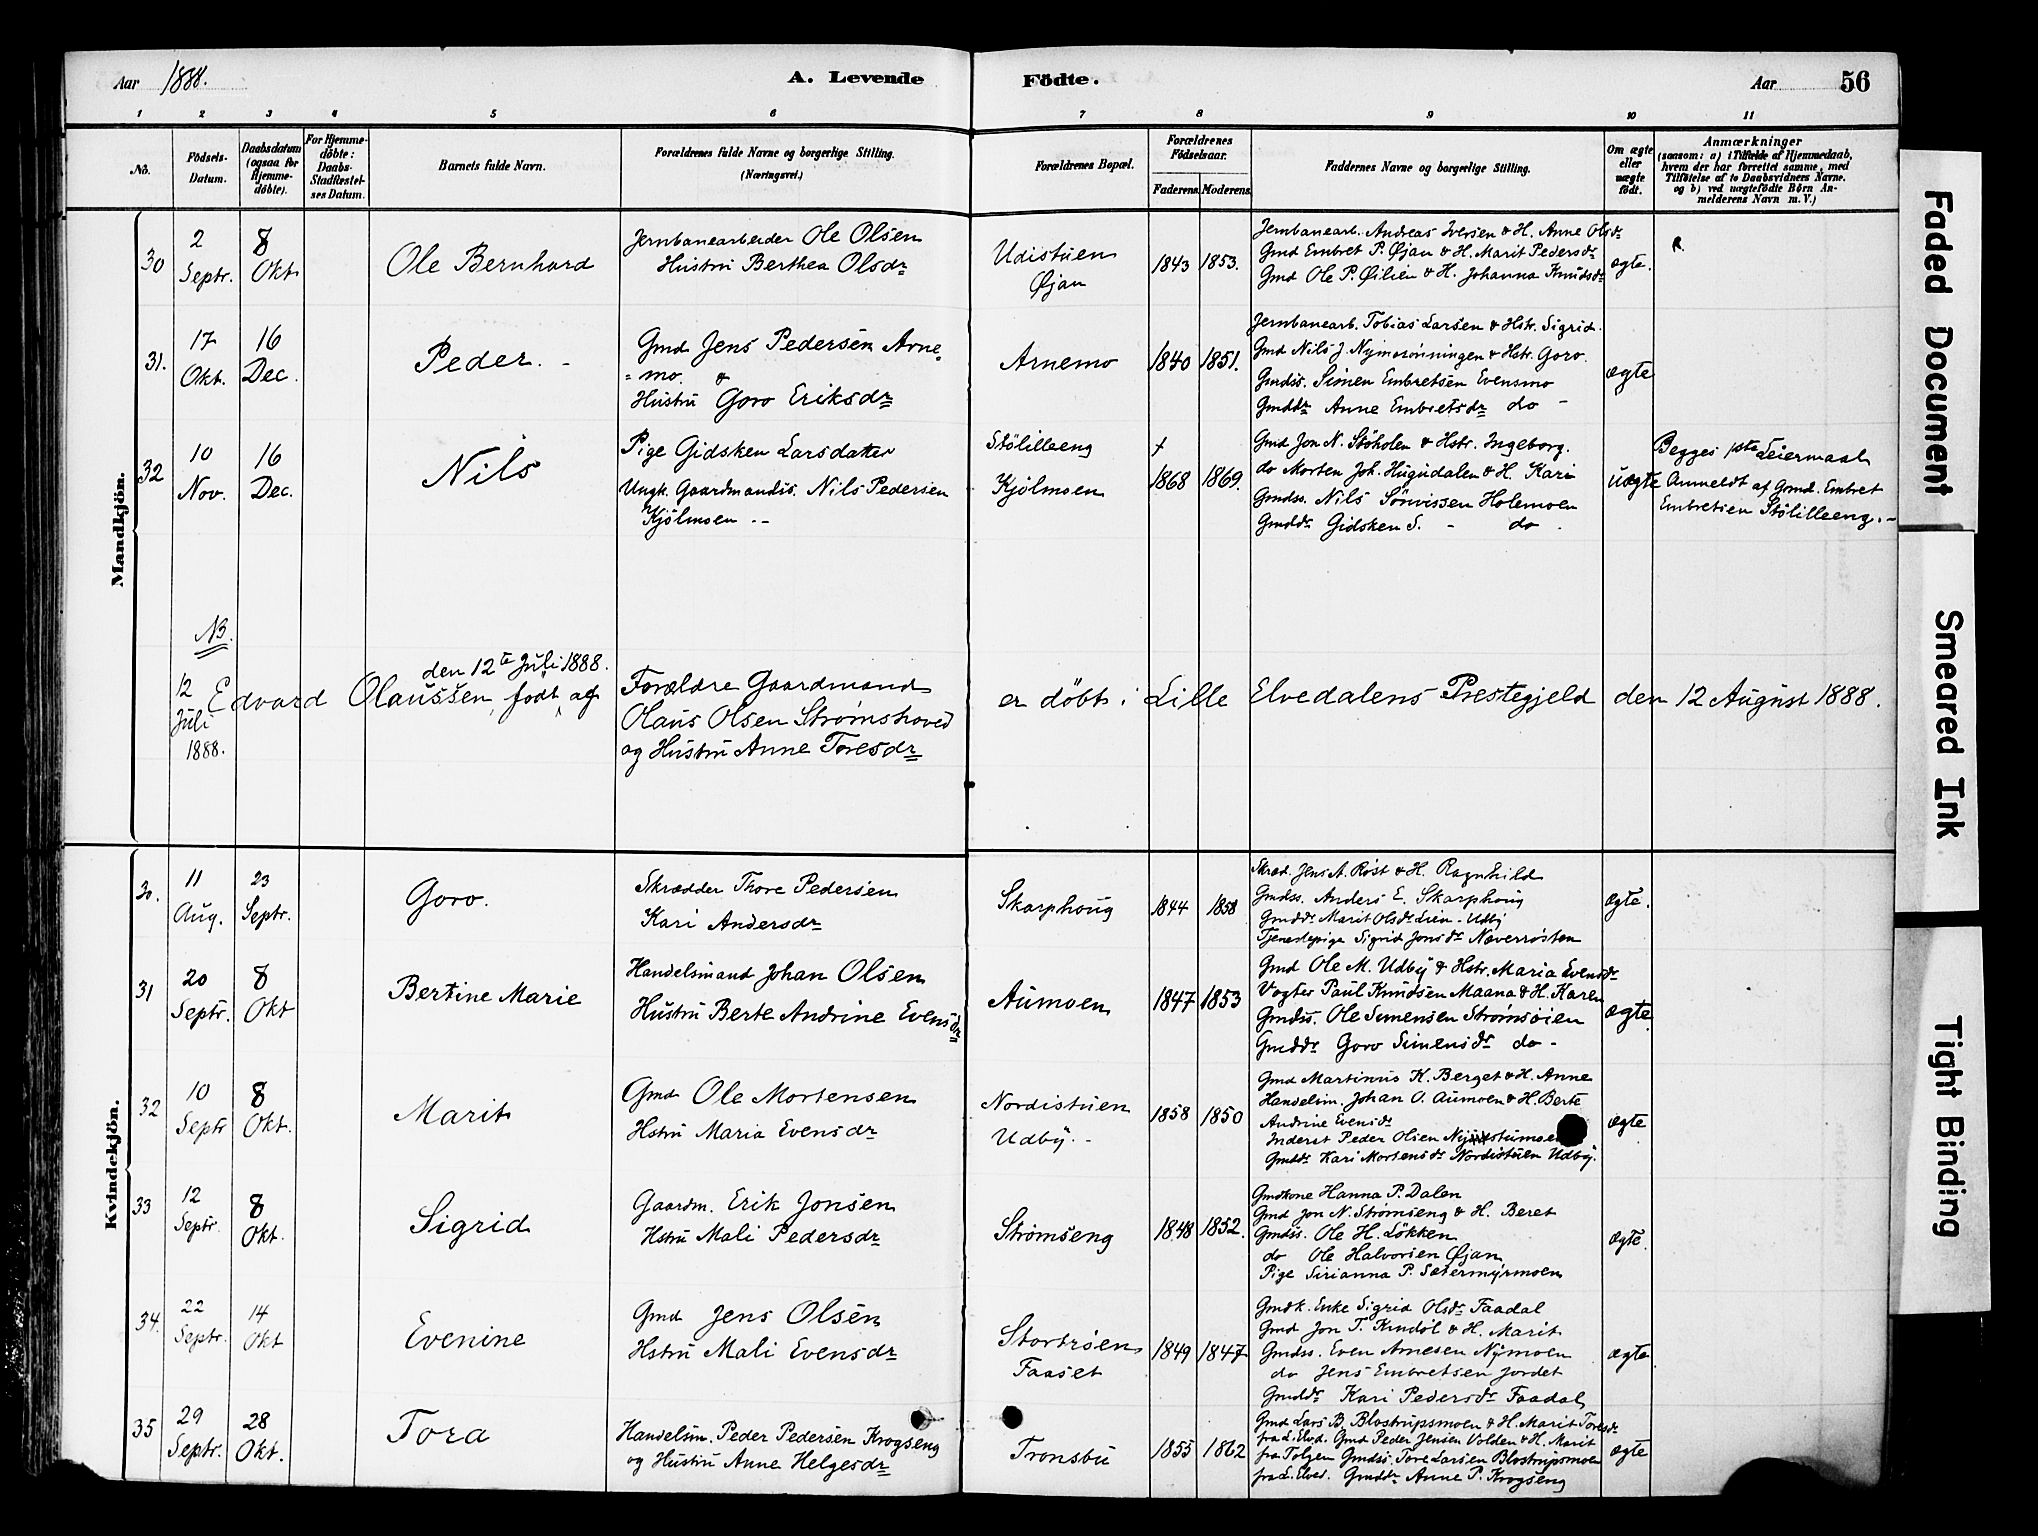 Aar 1888. A. Levende Födte. Aar 56
1 2 3 4 5 6 7 8 9 10 11
No. Födsels-Datum. Daabsdatum (ogsaa for Hjemme-döbte). For Hjemme-döbte: Daabs-Stadfæstel-ses Datum. Barnets fulde Navn. Forældrenes fulde Navne og borgerlige Stilling. (Næringsvei.) Forældrenes Bopæl. Forældrenes Födselsaar. Faderens. Moderens. Faddernes Navne og borgerlige Stilling. Om ægte eller uægte födt. Anmærkninger (saasom: a) i Tilfælde af Hjemmedaab, hvem der har forrettet samme, med Tilföielse af to Daabsvidners Navne. og b) ved uægtefödte Börn An-melderens Navn m. V.)
Mandkjön.
30 2 Septr. 8 Okt Ole Bernhard
Jernbanearbeider Ole Olsen
Hustru Berthea Olsdr
Udistuen
Øjan
1843 1853.
Jernbanearb. Andreas Iversen & H. Anne Olsdr
Gmd Embret P. Øjan & H. Marit Pedersdr
Gmd Ole P. Øilien & H. Johanna Knudsdr
ægte.
31. 17 Okt. 16 Dec. Peder. -
Gmd Jens Pedersen Arne=
=mo. &
Hustru Goro Eriksdr
Arnemo 1840 1851.
Jernbanearb. Tobias Larsen & Hstr. Sigrid.
Gmd Nils J. Nymosönningen & Hstr. Goro.
Gmdss. Simen Embretsen Evensmo
Gmddr Anne Embretsdr do -
ægte
32 10 Nov. 16 Dec. Nils
Pige Gidsken Larsdatter
Ungk. Gaardmandss. Nils Pedersen
Kjölmoen --
Stölilleeng
Kjölmoen
+
1868 1869.
Gmd Jon N. Stöholen & Hstr. Ingeborg.
do Morten Joh. Hugudalen & H. Kari
Gmdss. Nils Sönvissen Holemoen
Gmddr Gidsken S. - do -
uægte
Begges 1ste Leiermaal
Anmeldt af Gmd. Embret
Embretsen Stölilleeng. -
NB.
12 Juli 1888.
den 12te Juli 1888.
Edvard Olaussen, født af
Forældre Gaardmand
Olaus Olsen Strømshoved
og Hustru Anne Toresdr
er döbt i Lille Elvedalens Prestegjeld den 12 August 1888.
Kvindekjön.
30. 11 Aug. 23 Septr. Goro.
Skrædder Thore Pedersen
Kari Andersdr
Skarphoug 1844 1858
Skræd. Jens A. Röst & H. Ragnhild
Gmdss. Anders E. Skarphoug
Gmddr Marit Olsdr Lien - Udby
Tjenestepige Sigrid Jonsdr Næverrösten
ægte.
31 20 Septr. 8 Okt Bertine Marie
Handelsmand Johan Olsen
Hustru Berte Andrine Evensdr
Aumoen 1847 1853
Gmd Ole M. Udby & Hstr. Maria Evensdr
Vogter Paul Knudsen Maana & H. Karen
Gmdss. Ole Simensen Strömsöien
Gmddr Goro Simensdr do -
ægte
32 10 Septr 8 Okt. Marit
Gmd Ole Mortensen
Hstru Maria Evensdr
Nordistuen
Udby. -
1858 1850
Gmd Martinus K. Berget & H. Anne
Handelsm. Johan O. Aumoen & H. Berte
Andrine Evensdr
Inderst Peder Olsen
Gmddr Kari Mortensdr Nordistuen Udby.
ægte
33 12 Septr. 8 Okt. Sigrid
Gaardm. Erik Jonsen
Hstru Mali Pedersdr
Strömseng 1848 1852.
Gmdkone Hanna P. Dalen
Gmd Jon N. Strömseng & H. Beret
Gmdss. Ole H. Lökken
do Ole Halvorsen Øjan
Pige Sirianna P. Sætermyrmoen
ægte.
34. 22 Septr. 14 Okt Evenine
Gmd Jens Olsen
Hstru Mali Evensdr
Stortröen
Faaset
1849 1847
Gmdk. Enke Sigrid Olsdr Faadal
Gmd Jon T. Kindöl & H. Marit
Gmdss. Even Arnesen Nymoen
do Jens Embretsen Jordet
Gmddr Kari Pedersdr Faadal
ægte
35 29 Septr. 28 Okt. Tora
Handelsm. Peder Pedersen Krogseng
og Hustru Anne Helgesdr
Tronsbu 1855 1862
Gmd Lars B. Blostrupsmoen & H. Marit Toresdr
fra L. Elvd. Gmd Peder Jensen Volden & H. Marit
fra Tolgen Gmdss. Tore Larsen Blostrupsmoen
fra L. Elved. Gmddr Anne P. Krogseng
ægte
Faded Document
Smeared Ink
Tight Binding